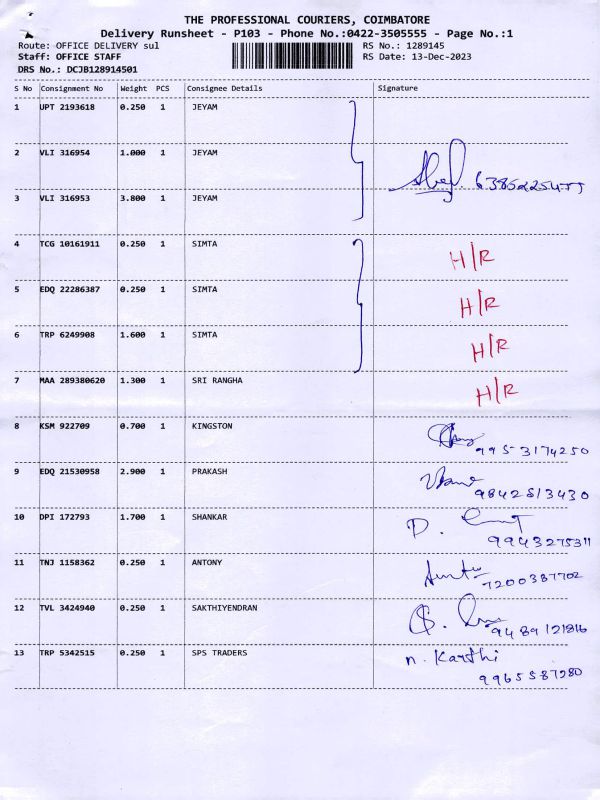 THE PROFESSIONAL COURIERS, COIMBATORE
Delivery Runsheet - P103 - Phone No.:0422-3505555 - Page No.:1
Route: OFFICE DELIVERY sul RS No.: 1289145
Staff: OFFICE STAFF RS Date: 13-Dec-2023
DRS No.: DCJB128914501
S No Consignment No Weight PCS Consignee Details Signature
1 UPT 2193618 0.250 1 JEYAM
2 VLI 316954 1.000 1 JEYAM
3 VLI 316953 3.800 1 JEYAM
4 TCG 10161911 0.250 1 SIMTA H/R
5 EDQ 22286387 0.250 1 SIMTA H/R
6 TRP 6249908 1.600 1 SIMTA H/R
7 MAA 289380620 1.300 1 SRI RANGHA H/R
8 KSM 922709 0.700 1 KINGSTON
9953174250
9 EDQ 21530958 2.900 1 PRAKASH
9842513430
10 DPI 172793 1.700 1 SHANKAR
9943275311
11 TNJ 1158362 0.250 1 ANTONY
7200387702
12 TVL 3424940 0.250 1 SAKTHIYENDRAN
9489121816
13 TRP 5342515 0.250 1 SPS TRADERS n. Karthi
9965587280